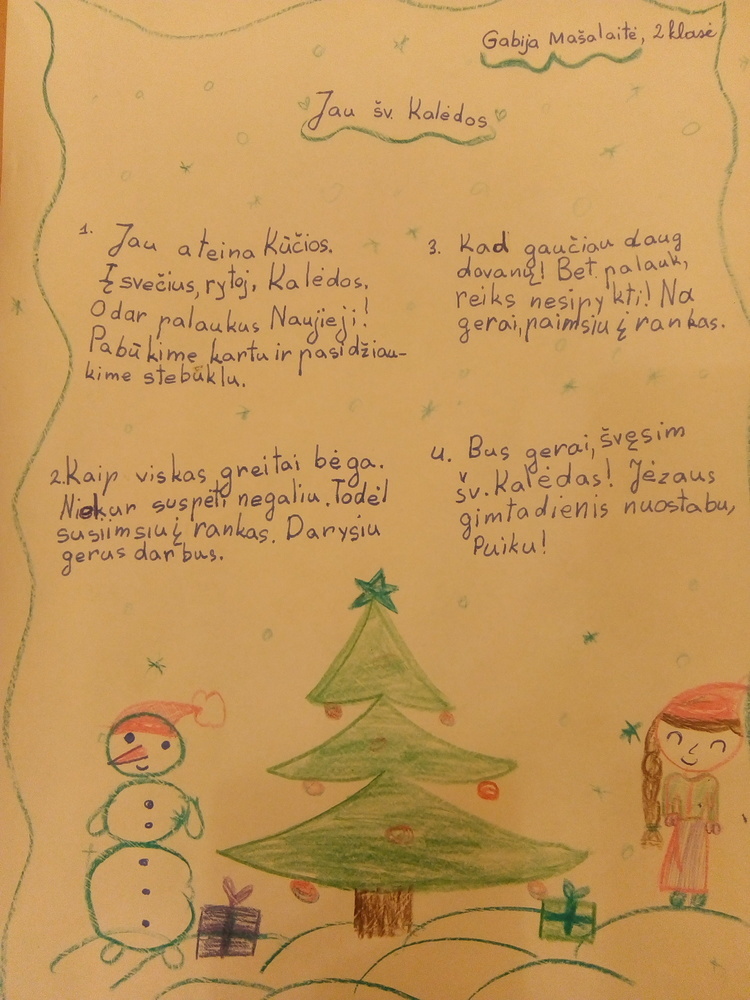 Gabija Mašalaitė, 2 klasė
Jau šv. Kalėdos
1. Jau ateina Kūčios.
Į svečius, rytoj, Kalėdos.
O dar palaukus Naujieji!
Pabūkime kartu ir pasidžiau-
kime stebuklu.
2. Kaip viskas greitai bėga.
Niekur suspėti negaliu. Todėl
susiimsiu į rankas. Darysiu
gerus darbus.
3. Kad gaučiau daug
dovanų! Bet palauk,
reiks nesipykti! Na
gerai, paimsiu į rankas.
4. Bus gerai, švęsim
šv. Kalėdas! Jėzaus
gimtadienis nuostabu,
Puiku!